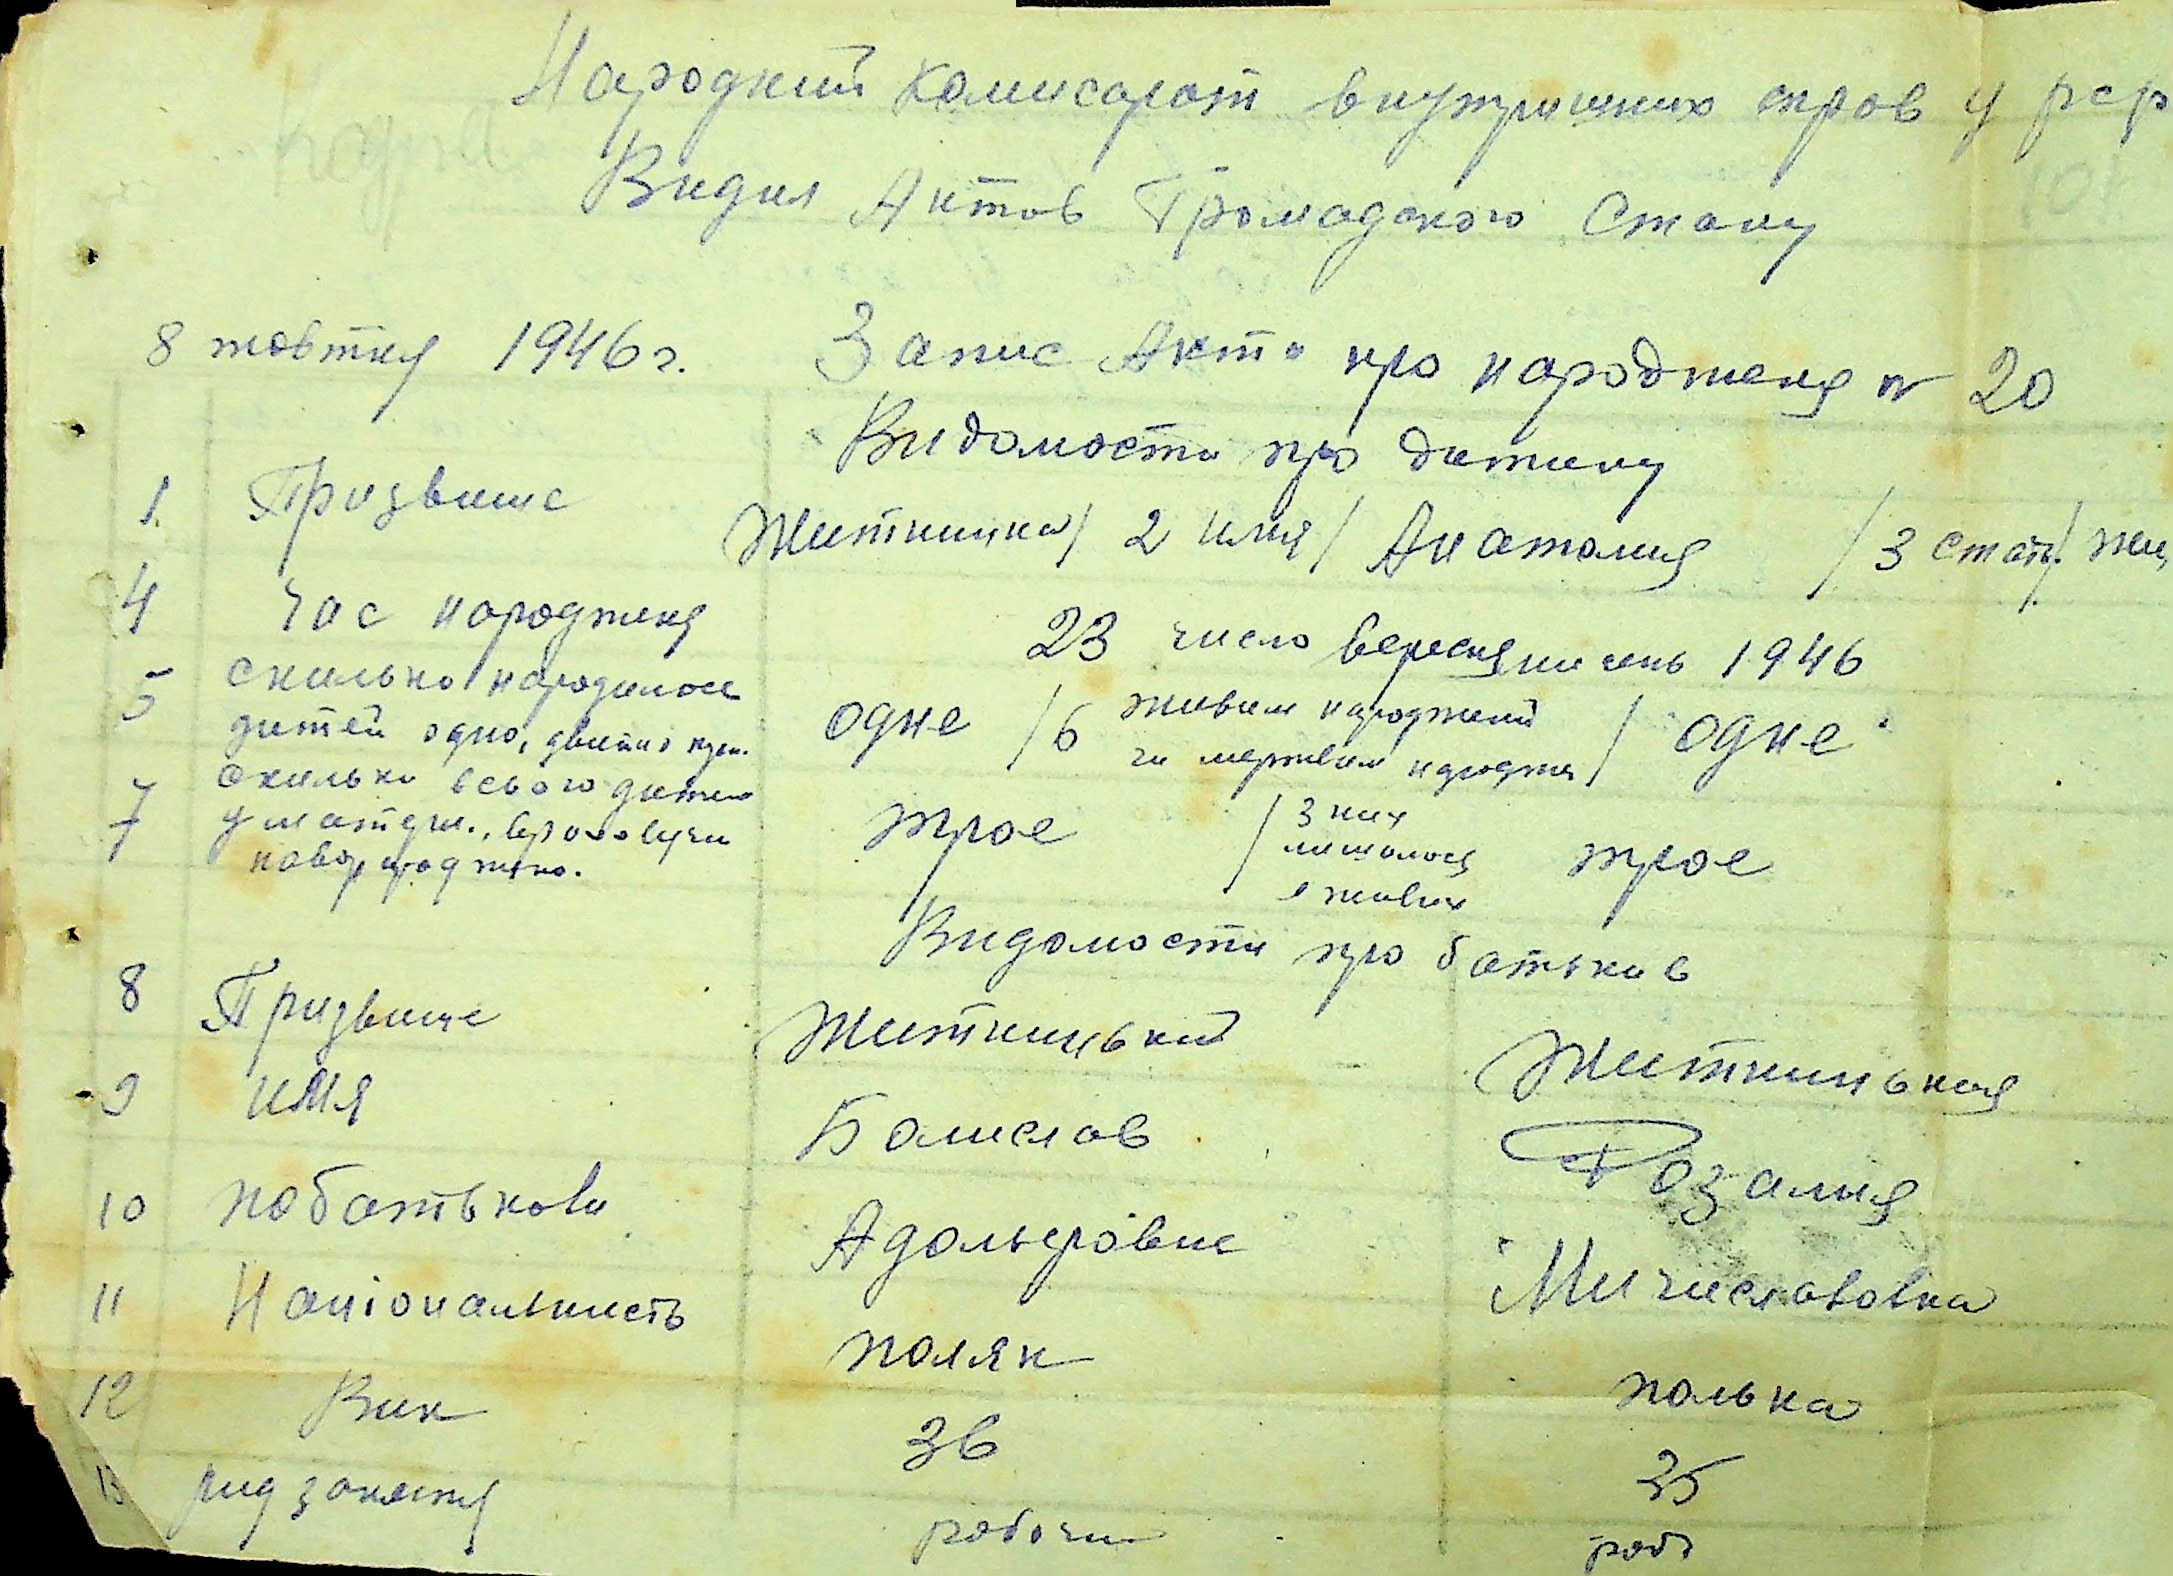 Народний Комисарат внутришних справ УРСР
Видил Актов Громадского Стану
8 жовтня 1946 г. Запис Акта про народженя № 20
Видомости про дитину
1 Призвище Житницка / 2 имя / Анатолия / 3 стать / жи
4 час народженя 23 число вересня мисець 1946
5 скилько народилось дитей одно, двийня одне / 6 живим народжений чи мертвим народже / одне
7 скилько всього дитей у матери, враховуючи новонароджено. трое / з них лишилося в живих трое
Видомости про батькив
8 Призвище Житницький Житницькая
9 имя Болислав Розалия
10 по батькови Адольфовие Мичиславовна
11 Національнисть поляк полька
12 Вик 36 25
13 рид заняття робочи роб